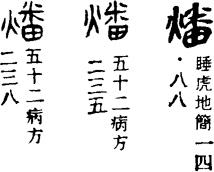 燔
睡虎地簡一四
·八八
燔
五十二病方
二三五
燔
五十二病方
二三八